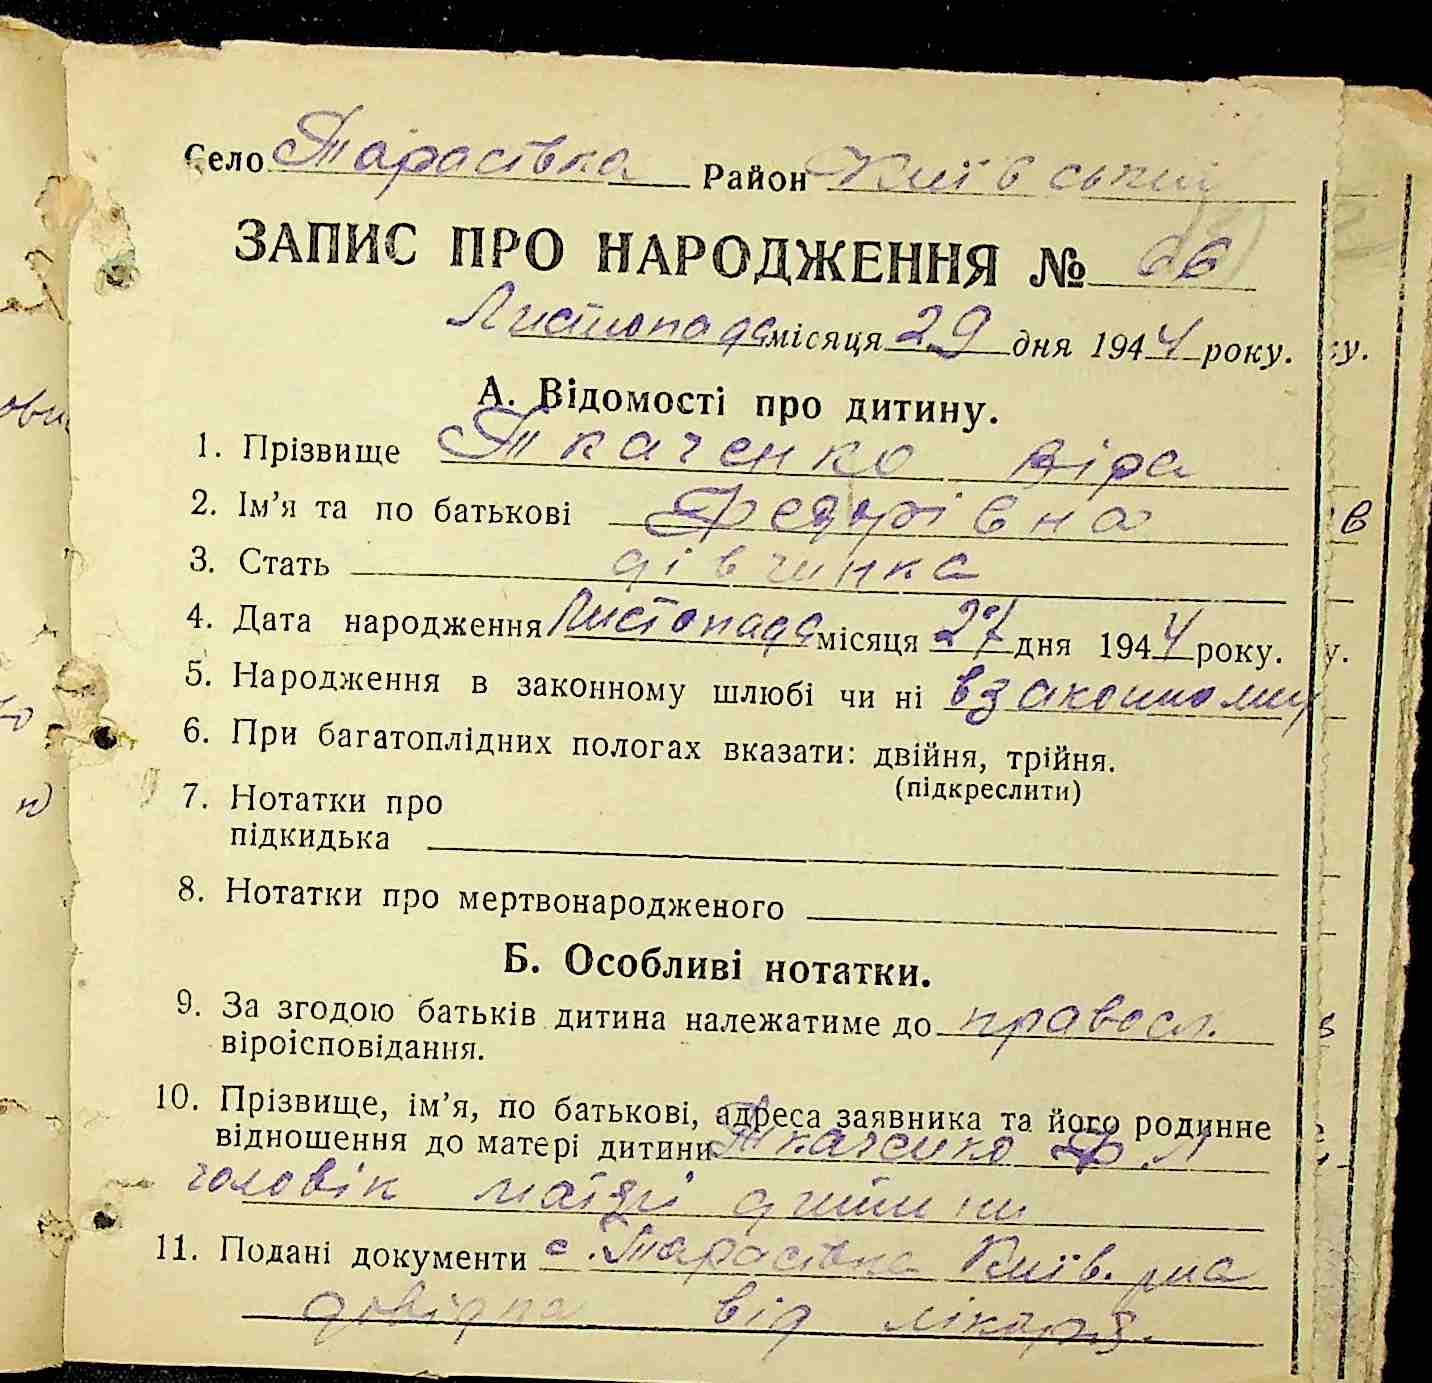 Село Тарасівка Район Київський
ЗАПИС ПРО НАРОДЖЕННЯ № 66
Листопада місяця 29 дня 1944 року.
А. Відомості про дитину.
1. Прізвище Ткаченко Віра
2. Ім'я та по батькові Федорівна
3. Стать дівчинка
4. Дата народження Листопада місяця 27 дня 1944 року.
5. Народження в законному шлюбі чи ні в законному
6. При багатоплідних пологах вказати: двійня, трійня.
(підкреслити)
7. Нотатки про
підкидька
8. Нотатки про мертвонародженого
Б. Особливі нотатки.
9. За згодою батьків дитина належатиме до правосл.
віроісповідання.
10. Прізвище, ім'я, по батькові, адреса заявника та його родинне
відношення до матері дитини Ткаченко Ф. Л
чоловік матері дитини
11. Подані документи с. Тарасівка Київ. р-на
довідка від лікаря.